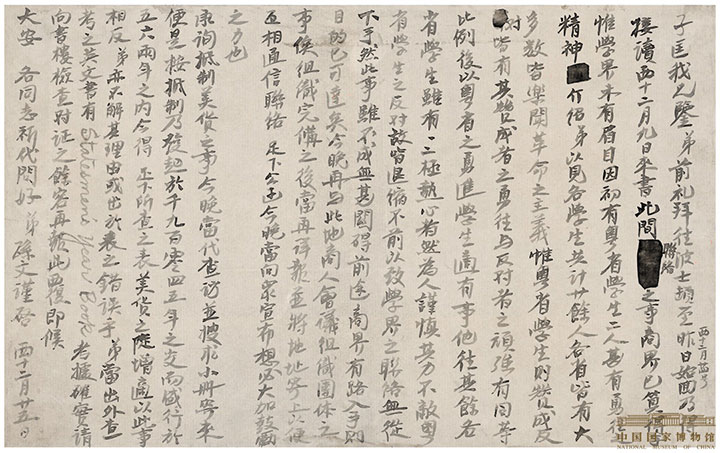 子匡我兄鑒弟前礼拜往波士頓至昨日始回乃得
西十二月廿五号
接讀西十二月九日來書此間聯絡之事商界已算得手
惟學界未有眉目因初有粵省學生二人甚有勇往
精神介紹弟以見各學生共計廿餘人各省皆有大
多數皆樂聞革命之主義惟粵省學生則贊成反
對皆有其贊成者之勇往与反对者之頑強有同等
比例後以粵省之勇進學生適有事他往其餘各
省學生雖有一二極熱心者然為人謹慎其力不敵粵
省學生之反对故皆退縮不前以致學界之聯絡無從
下手然此事雖不成無甚關碍前途商界有路入手則
目的已可達矣今晚再与此地商人會議組織團体之
事俟組織完備之後當再詳報並將地址寄上以便
互相通信聯絡足下公函今晚當向眾宣布想必大加鼓勵
之力也
承詢抵制美貨之事今晚當代查訪並搜求小冊寄來
便是按抵制乃發起於千九百零四五年之交而盛行於
五六兩年之內今得足下所查之表美貨之陡增適以此事
相反弟亦不解其理由或出於表之錯誤乎弟當出外查
考之英文書有Statesmen's Year Book者據確實請
向書樓檢查对证之餘容再報此覆即候
大安各同志祈代問好弟孫文謹啓西十二月廿五日
中国国家博物馆
NATIONAL MUSEUM OF CHINA